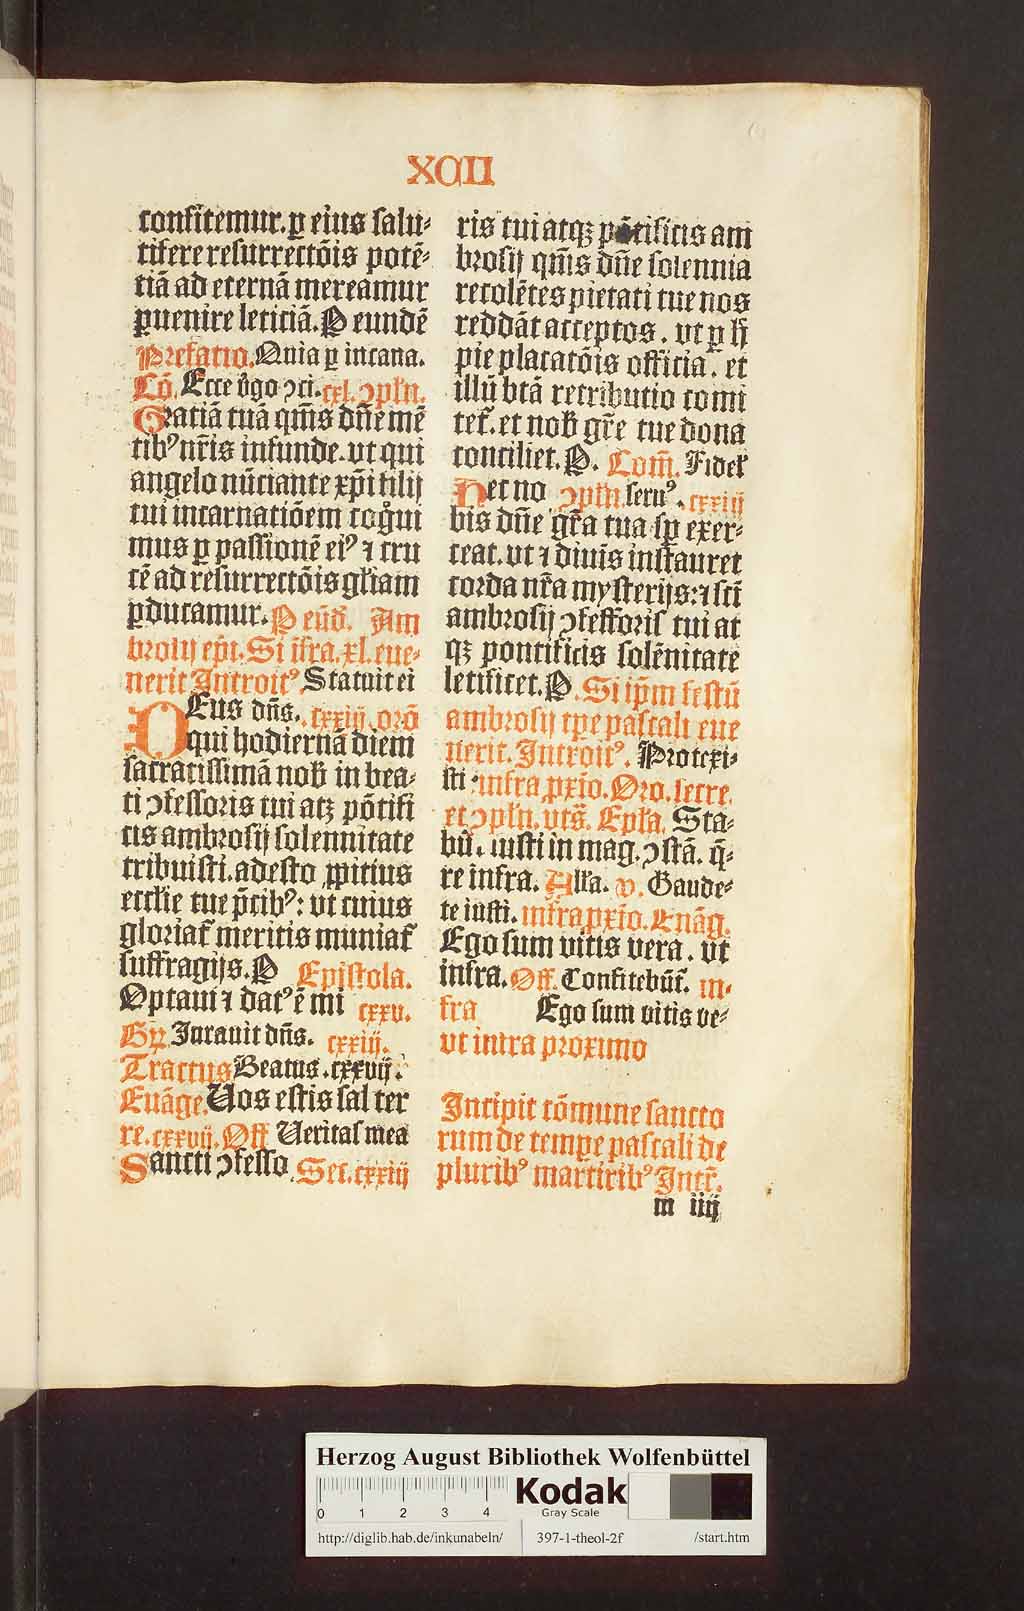 XCII
confitemur. ꝑ eius salu⸗
tifere resurrectōis potē⸗
tiā ad eternā mereamur
ꝑuenire leticiā. P eundē
Prefatio. Quia ꝑ incana.
Cō. Ecce v̄go ↄci. cxl. ↄpl̄n.
Gratiā tuā qm̄s dn̄e mē
tibꝰ nr̄is infunde. vt qui
angelo nūciante xp̄i filij
tui incarnatiōem cogͦui
mus ꝑ passionē eiꝰ ⁊ cru
cē ad resurrectōis gl̄iam
ꝑducamur. P eūd̄. Am
brosij ep̄i. Si īfra. xl. eue⸗
nerit Introitꝰ. Statuit ei
DEus dn̄s. cxxiij. orō
qui hodiernā diem
sacratissimā nob̄ in bea⸗
ti ↄfessoris tui atqꝫ pōtifi
cis ambrosij solennitate
tribuisti. adesto ꝓpitius
eccl̄ie tue p̄cibꝰ: vt cuius
gloriat̄ meritis muniat̄
suffragijs. P Epistola.
Optaui ⁊ datꝰ ē mi cxxv.
Gꝝ Iurauit dn̄s. cxxiij.
Tractus Beatus. cxxvij.
Euāge. Uos estis sal ter
re. cxxvij. Off Ueritas mea
Sancti ↄfesso. Sec. cxxiij
ris tui atqꝫ pōtificis am
brosij qm̄s dn̄e solennia
recolētes pietati tue nos
reddāt acceptos. vt ꝑ h̄
pie placatōis officia. et
illū btā retributio comi
tet̄. et nob̄ gr̄e tue dona
conciliet. P. Com̄. Fidel̄
Hec no ↄpl̄n. seruꝰ. cxxiij
bis dn̄e gr̄a tua sꝑ exer⸗
ceat. vt ⁊ diuīs instauret
corda nr̄a mysterijs: ⁊ scī
ambrosij ↄfessoris tui at
qꝫ pontificis solēnitate
letificet. P. Si ip̄m festū
ambrosij tꝑe pascali eue
nerit. Introitꝰ. Protexi⸗
sti infra ꝓxīo. Oro. secre.
et ↄpl̄n. vts̄. Epl̄a. Sta⸗
bū. iusti in mag. ↄstā. q̄⸗
re infra. All̄a. v. Gaude⸗
te iusti. infra ꝓxīo. Euāg.
Ego sum vitis vera. vt
infra. Off. Confitebūt̄. in⸗
fra Ego sum vitis ve⸗
vt infra proximo
Incipit cōmune sancto
rum de tempe pascali de
pluribꝰ martiribꝰ Intr̄.
m iiij
Herzog August Bibliothek Wolfenbüttel
0 1 2 3 4
Kodak
Gray Scale
http://diglib.hab.de/inkunabeln/ 397-1-theol-2f /start.htm